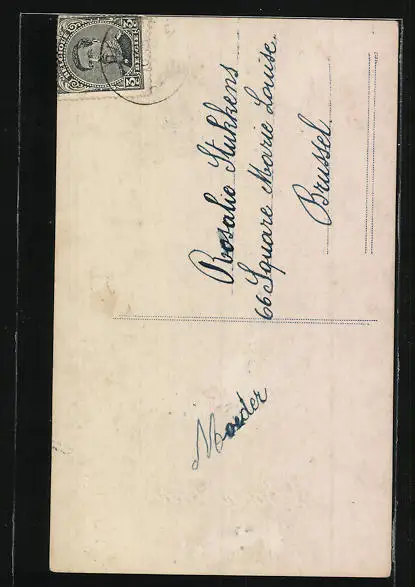 BELGIQUE
BELGIË
2
Moeder
Rosalie Stukkens
66 Square Marie Louise.
Brussel.